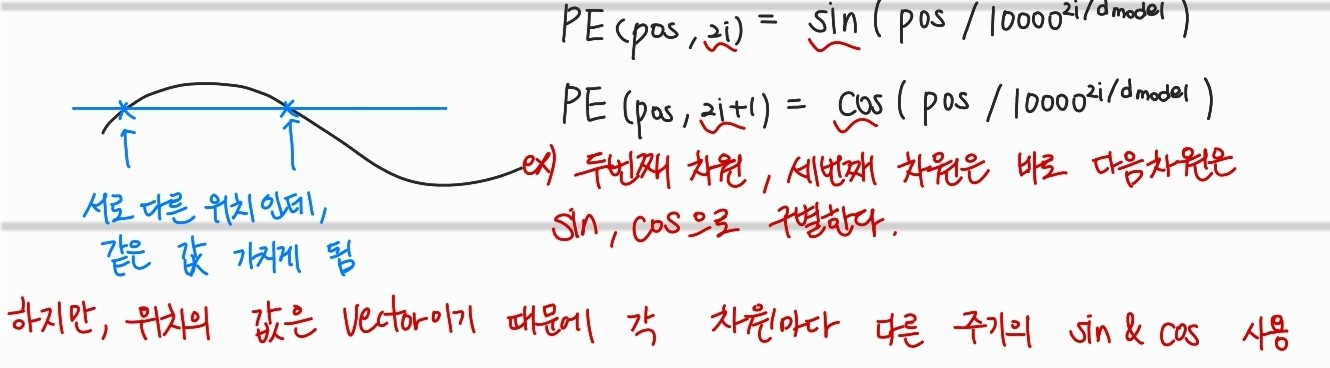 PE(pos, 2i) = sin( pos / 10000^{2i/dmodel} )
PE(pos, 2i+1) = cos( pos / 10000^{2i/dmodel} )
ex) 두번째 차원, 세번째 차원은 바로 다음차원은
sin, cos으로 구별한다.
서로 다른 위치인데,
같은 값 가지게 됨
하지만, 위치의 값은 vector이기 때문에 각 차원마다 다른 주기의 sin & cos 사용